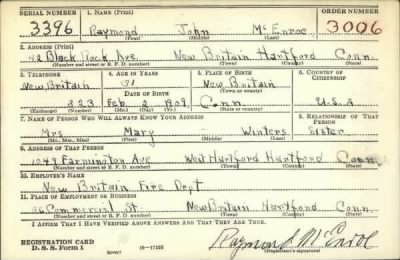 SERIAL NUMBER 1. NAME (Print) ORDER NUMBER
3396 Raymond John McEnroe 3006
(First) (Middle) (Last)
2. ADDRESS (Print)
42 Black Rock Ave. New Britain Hartford Conn.
(Number and street or R. F. D. number) (Town) (County) (State)
3. TELEPHONE 4. AGE IN YEARS 5. PLACE OF BIRTH 6. COUNTRY OF CITIZENSHIP
New Britain 31 New Britain
DATE OF BIRTH (Town or county)
223 Feb 2 1909 Conn U.S.A
(Exchange) (Number) (Mo.) (Day) (Yr.) (State or country)
7. NAME OF PERSON WHO WILL ALWAYS KNOW YOUR ADDRESS 8. RELATIONSHIP OF THAT PERSON
Mrs Mary Winters Sister
(Mr., Mrs., Miss) (First) (Middle) (Last)
9. ADDRESS OF THAT PERSON
1049 Farmington Ave West Hartford Hartford Conn
(Number and street or R. F. D. number) (Town) (County) (State)
10. EMPLOYER'S NAME
New Britain Fire Dept
11. PLACE OF EMPLOYMENT OR BUSINESS
Commercial St. New Britain Hartford Conn
(Number and street or R. F. D. number) (Town) (County) (State)
I AFFIRM THAT I HAVE VERIFIED ABOVE ANSWERS AND THAT THEY ARE TRUE.
REGISTRATION CARD
D. S. S. Form 1 (over) 16-17105 Raymond McEnroe
(Registrant's signature)